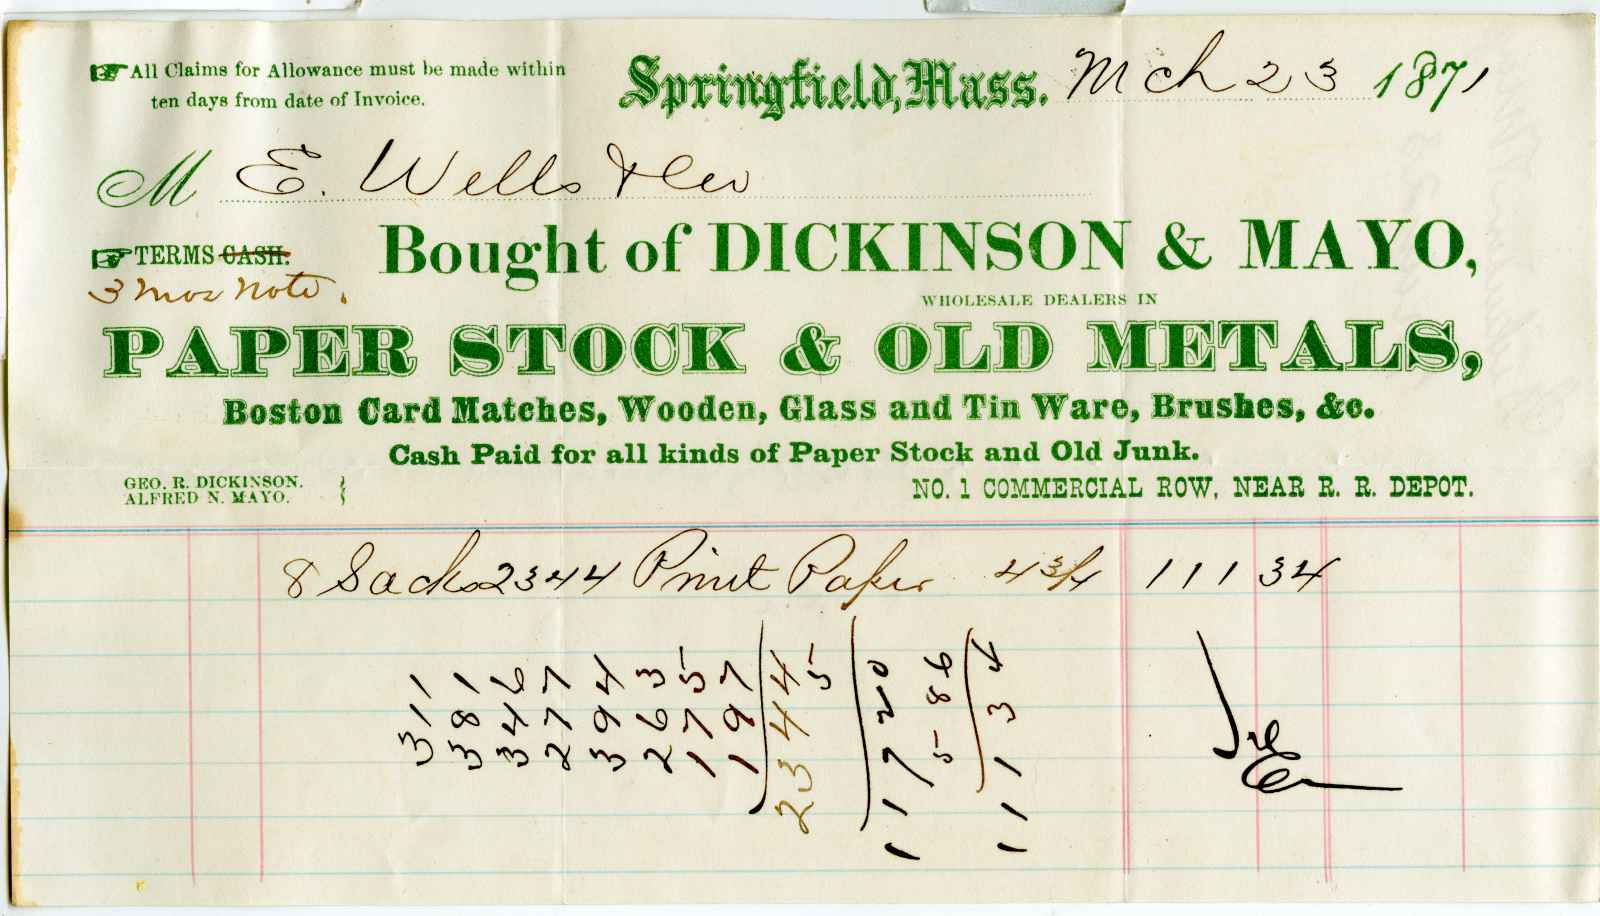 ☞All Claims for Allowance must be made within
ten days from date of Invoice.
Springfield, Mass. Mch 23 1871
M E. Wells & Co
☞TERMS CASH.
3 mos note.
Bought of DICKINSON & MAYO,
WHOLESALE DEALERS IN
PAPER STOCK & OLD METALS,
Boston Card Matches, Wooden, Glass and Tin Ware, Brushes, &c.
Cash Paid for all kinds of Paper Stock and Old Junk.
GEO. R. DICKINSON.
ALFRED N. MAYO.
NO. 1 COMMERCIAL ROW, NEAR R. R. DEPOT.
8 Sacks 2344 Print Paper 4 3/4 111 34
311
381
346
277
394
263
175
197
2344
5
11720
586
11134